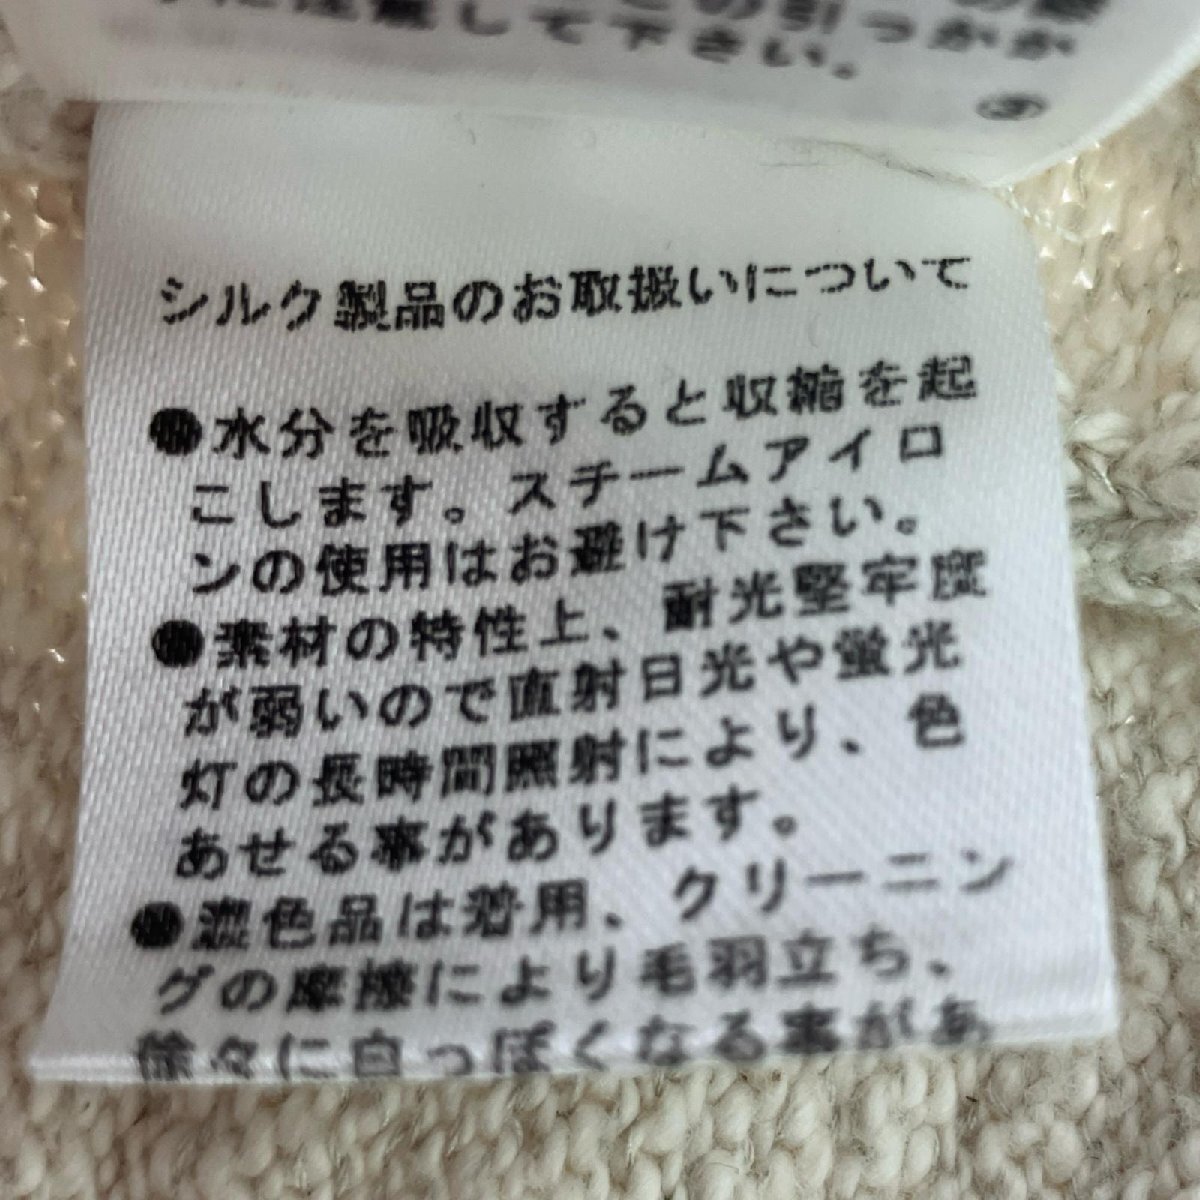 に注意して下さい。
の引っかか
シルク製品のお取扱いについて
●水分を吸収すると収縮を起
こします。スチームアイロ
ンの使用はお避け下さい。
●素材の特性上、耐光堅牢度
が弱いので直射日光や蛍光
灯の長時間照射により、色
あせる事があります。
●濃色品は着用、クリーニン
グの摩擦により毛羽立ち、
徐々に白っぽくなる事があ